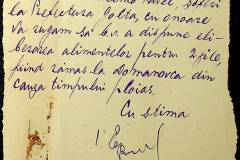 la Prefectura Golta, cu onoare
Va rugam sa b.v. a dispune eli-
berarea alimentelor pentru 2 zile,
fiind ramas la Domanovca din
cauza timpului ploias.
Cu stima